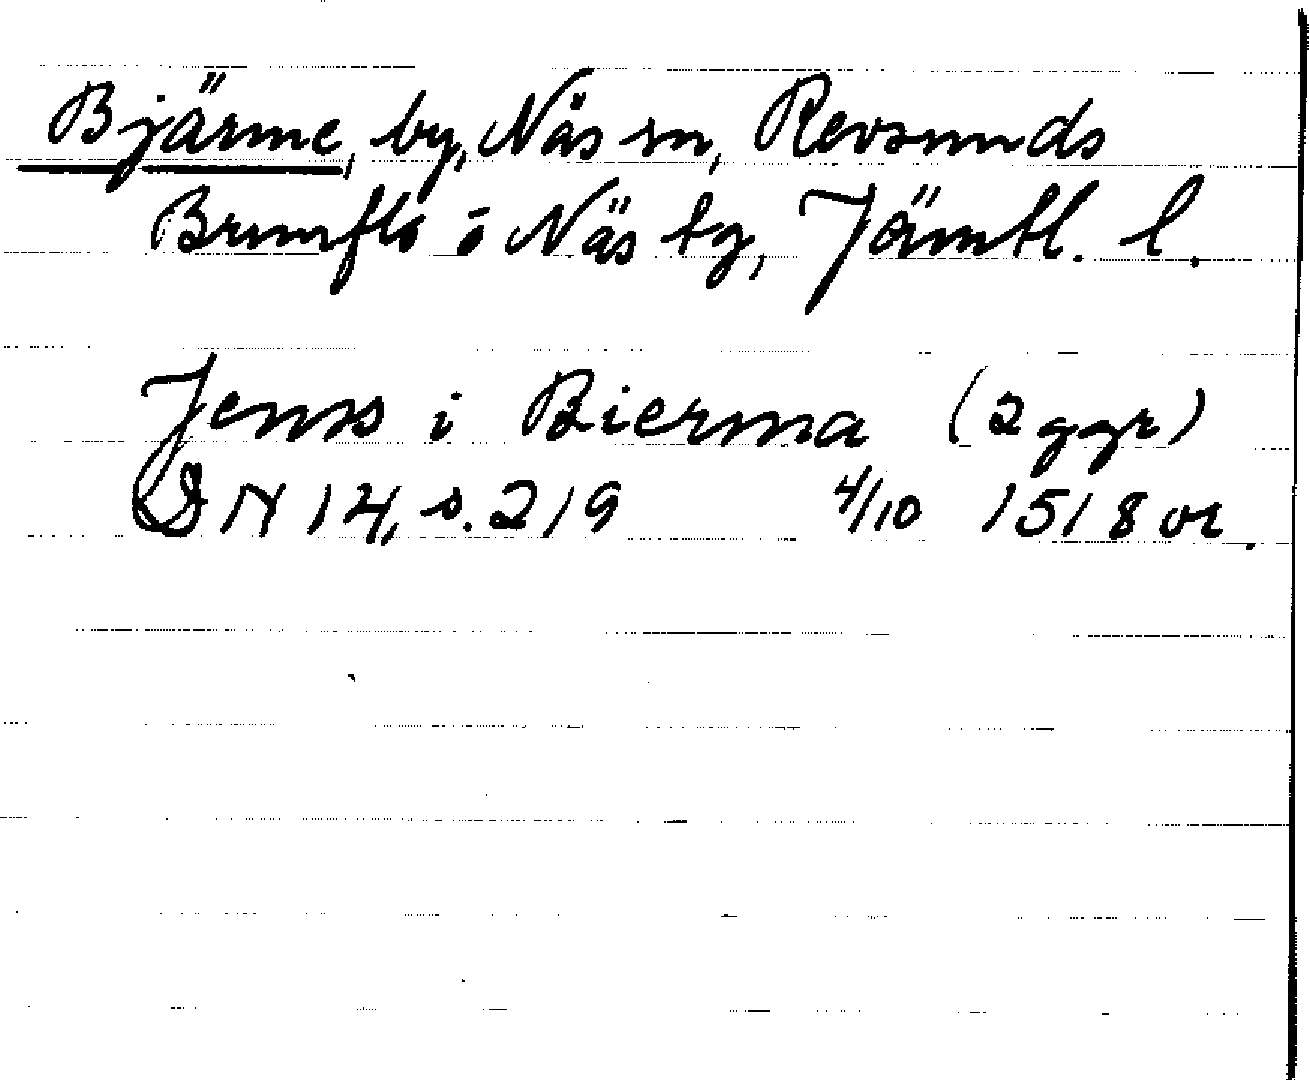 Bjärme, by, Näs sn, Revsunds
Brunflo o Näs tg, Jämtl. l.
Jenss i Bierma (2 ggr)
DN 14, s. 219 4/10 1518 or.